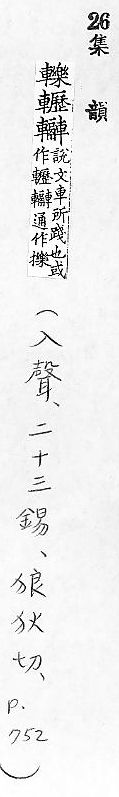 26集韻
轢轣轥說文車所踐也或
作轣轥通作擽
(入聲、二十三錫、狼狄切、
p.
752)